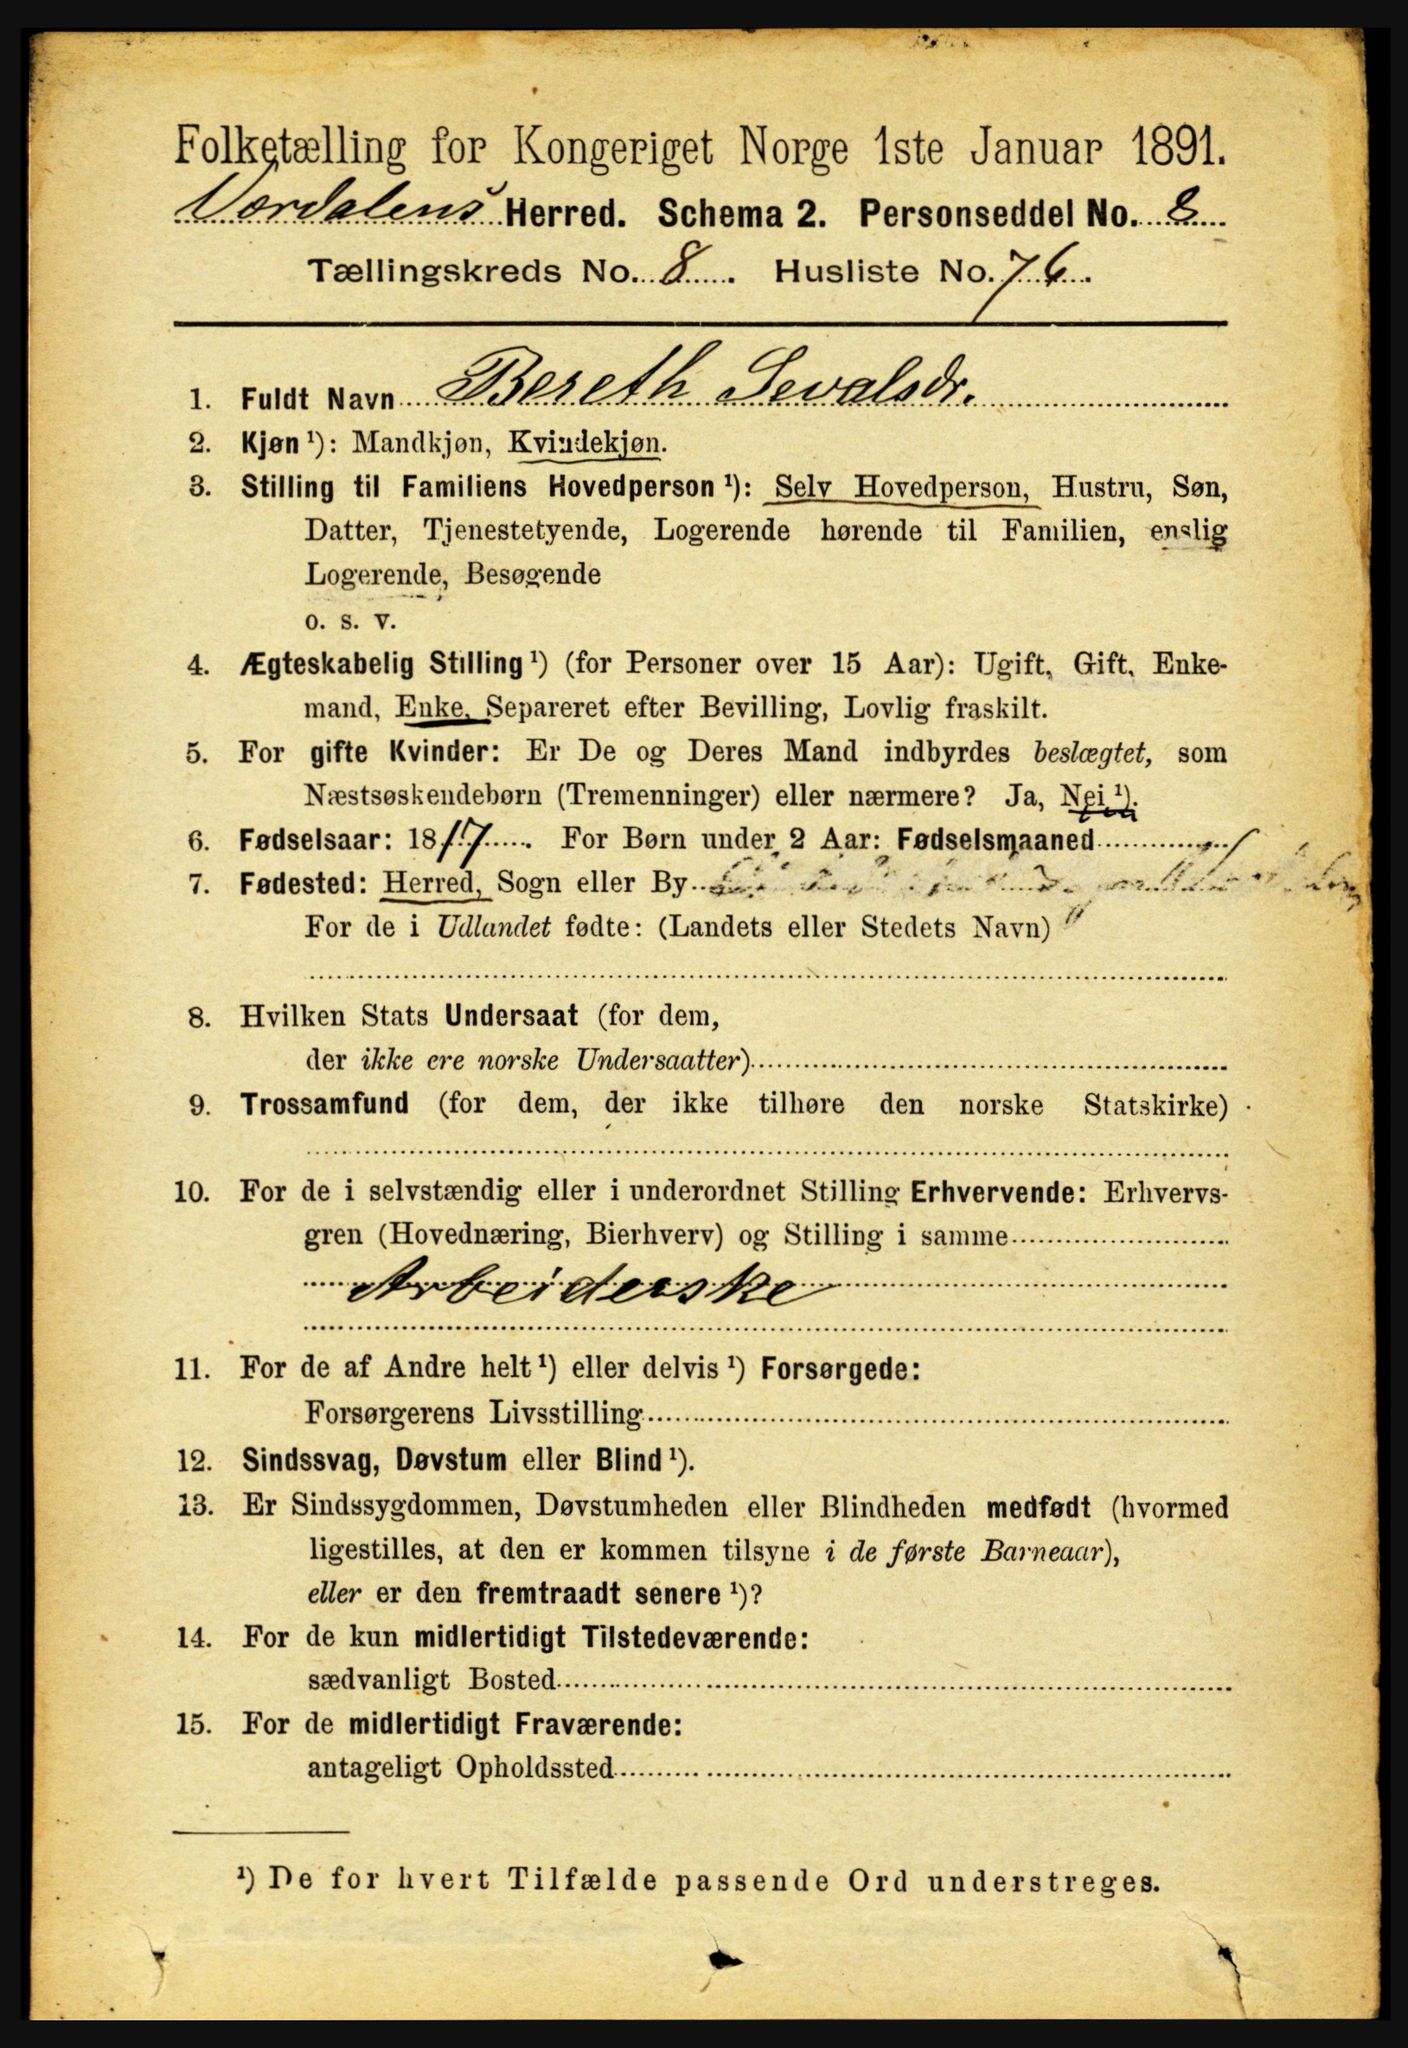 Folketælling for Kongeriget Norge 1ste Januar 1891.
Værdalens Herred. Schema 2. Personseddel No. 8
Tællingskreds No. 8. Husliste No. 76.
1. Fuldt Navn Bereth Sevalsdr.
2. Kjøn ¹): Mandkjøn, Kvindekjøn.
3. Stilling til Familiens Hovedperson ¹): Selv Hovedperson, Hustru, Søn,
Datter, Tjenestetyende, Logerende hørende til Familien, enslig
Logerende, Besøgende
o. s. v.
4. Ægteskabelig Stilling ¹) (for Personer over 15 Aar): Ugift, Gift, Enke-
mand, Enke, Separeret efter Bevilling, Lovlig fraskilt.
5. For gifte Kvinder: Er De og Deres Mand indbyrdes beslægtet, som
Næstsøskendebørn (Tremenninger) eller nærmere? Ja, Nei ¹).
6. Fødselsaar: 1817. For Børn under 2 Aar: Fødselsmaaned
7. Fødested: Herred, Sogn eller By
For de i Udlandet fødte: (Landets eller Stedets Navn)
8. Hvilken Stats Undersaat (for dem,
der ikke ere norske Undersaatter)
9. Trossamfund (for dem, der ikke tilhøre den norske Statskirke)
10. For de i selvstændig eller i underordnet Stilling Erhvervende: Erhvervs-
gren (Hovednæring, Bierhverv) og Stilling i samme
Arbeiderske
11. For de af Andre helt ¹) eller delvis ¹) Forsørgede:
Forsørgerens Livsstilling
12. Sindssvag, Døvstum eller Blind ¹).
13. Er Sindssygdommen, Døvstumheden eller Blindheden medfødt (hvormed
ligestilles, at den er kommen tilsyne i de første Barneaar),
eller er den fremtraadt senere ¹)?
14. For de kun midlertidigt Tilstedeværende:
sædvanligt Bosted
15. For de midlertidigt Fraværende:
antageligt Opholdssted
¹) De for hvert Tilfælde passende Ord understreges.